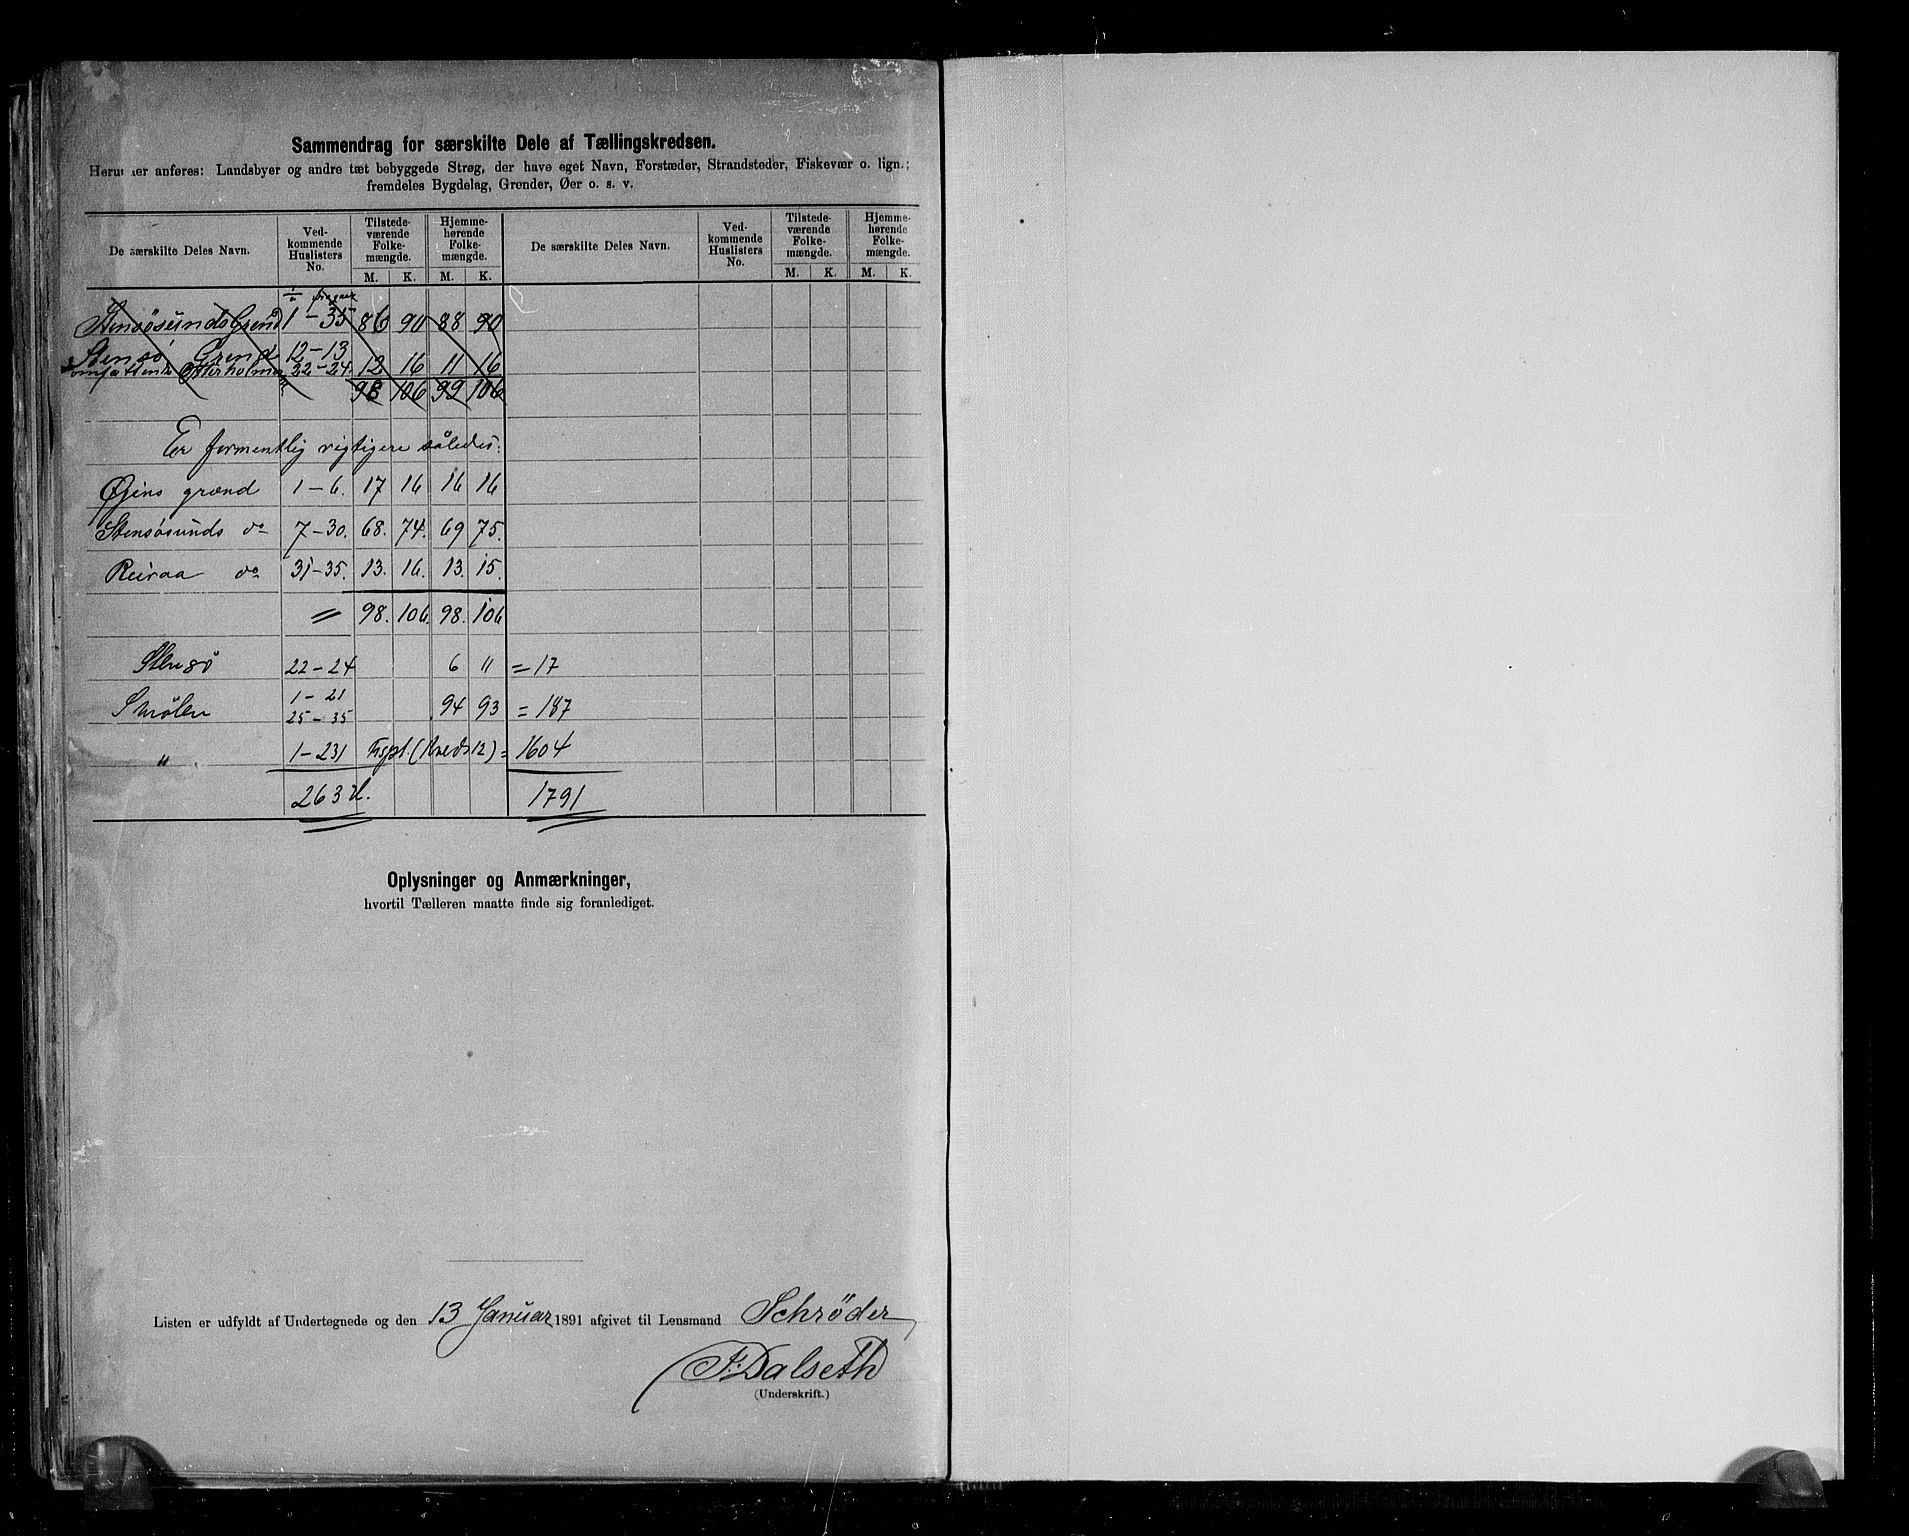 Sammendrag for særskilte Dele af Tællingskredsen.
anføres: Landsbyer og andre tæt bebyggede Strøg, der have eget Navn, Forstæder, Strandsteder, Fiskevær o. lign.;
fremdeles Bygdelag, Grender, Øer o. s. v.
De særskilte Deles Navn. Ved-kommende Huslisters No. Tilstede-værende Folke-mængde. Hjemme-hørende Folke-mængde. De særskilte Deles Navn. Ved-kommende Huslisters No. Tilstede-værende Folke-mængde. Hjemme-hørende Folke-mængde.
M. K. M. K. M. K. M. K.
Stensøsunds Grend 1 - 35 86 90 88 90
Stensø Grend 12-13
22-24 12 16 11 16
98 106 99 106
Er formentlig rigtigere således:
Øiens grænd 1-6. 17 16 16 16
Stensøsunds do 7-30. 68. 74. 69 75.
Reiraa do 31-35. 13. 16. 13. 15.
" 98. 106. 98. 106
Stensø 22-24 6 11 = 17
Smølen 1-21
25-35 94 93 = 187
" 1-231 (Kreds 12) = 1604
263 1791
Oplysninger og Anmærkninger,
hvortil Tælleren maatte finde sig foranlediget.
Listen er udfyldt af Undertegnede og den 13 Januar 1891 afgivet til Lensmand Schrøder
F. Dalseth
(Underskrift.)